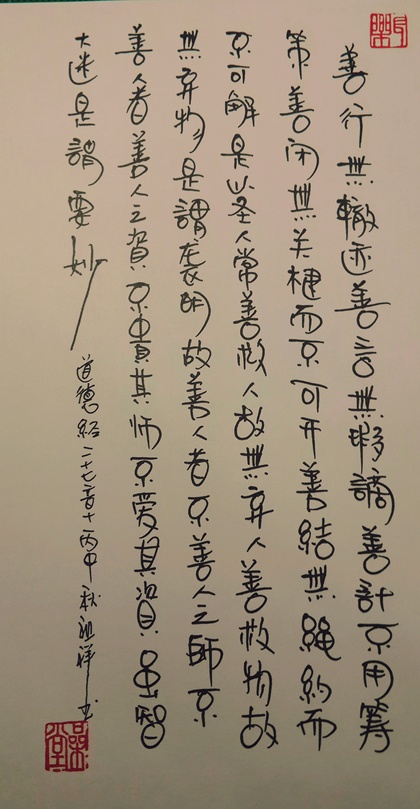 善行無轍迹善言無瑕謫善計不用籌
策善闭無关楗而不可开善結無繩約而
不可解是以圣人常善救人故無弃人善救物故
無弃物是謂袭明故善人者不善人之師不
善人者善人之資不貴其师不爱其資虽智
大迷是謂要妙
道德經二十七章 丙申秋祖祥书